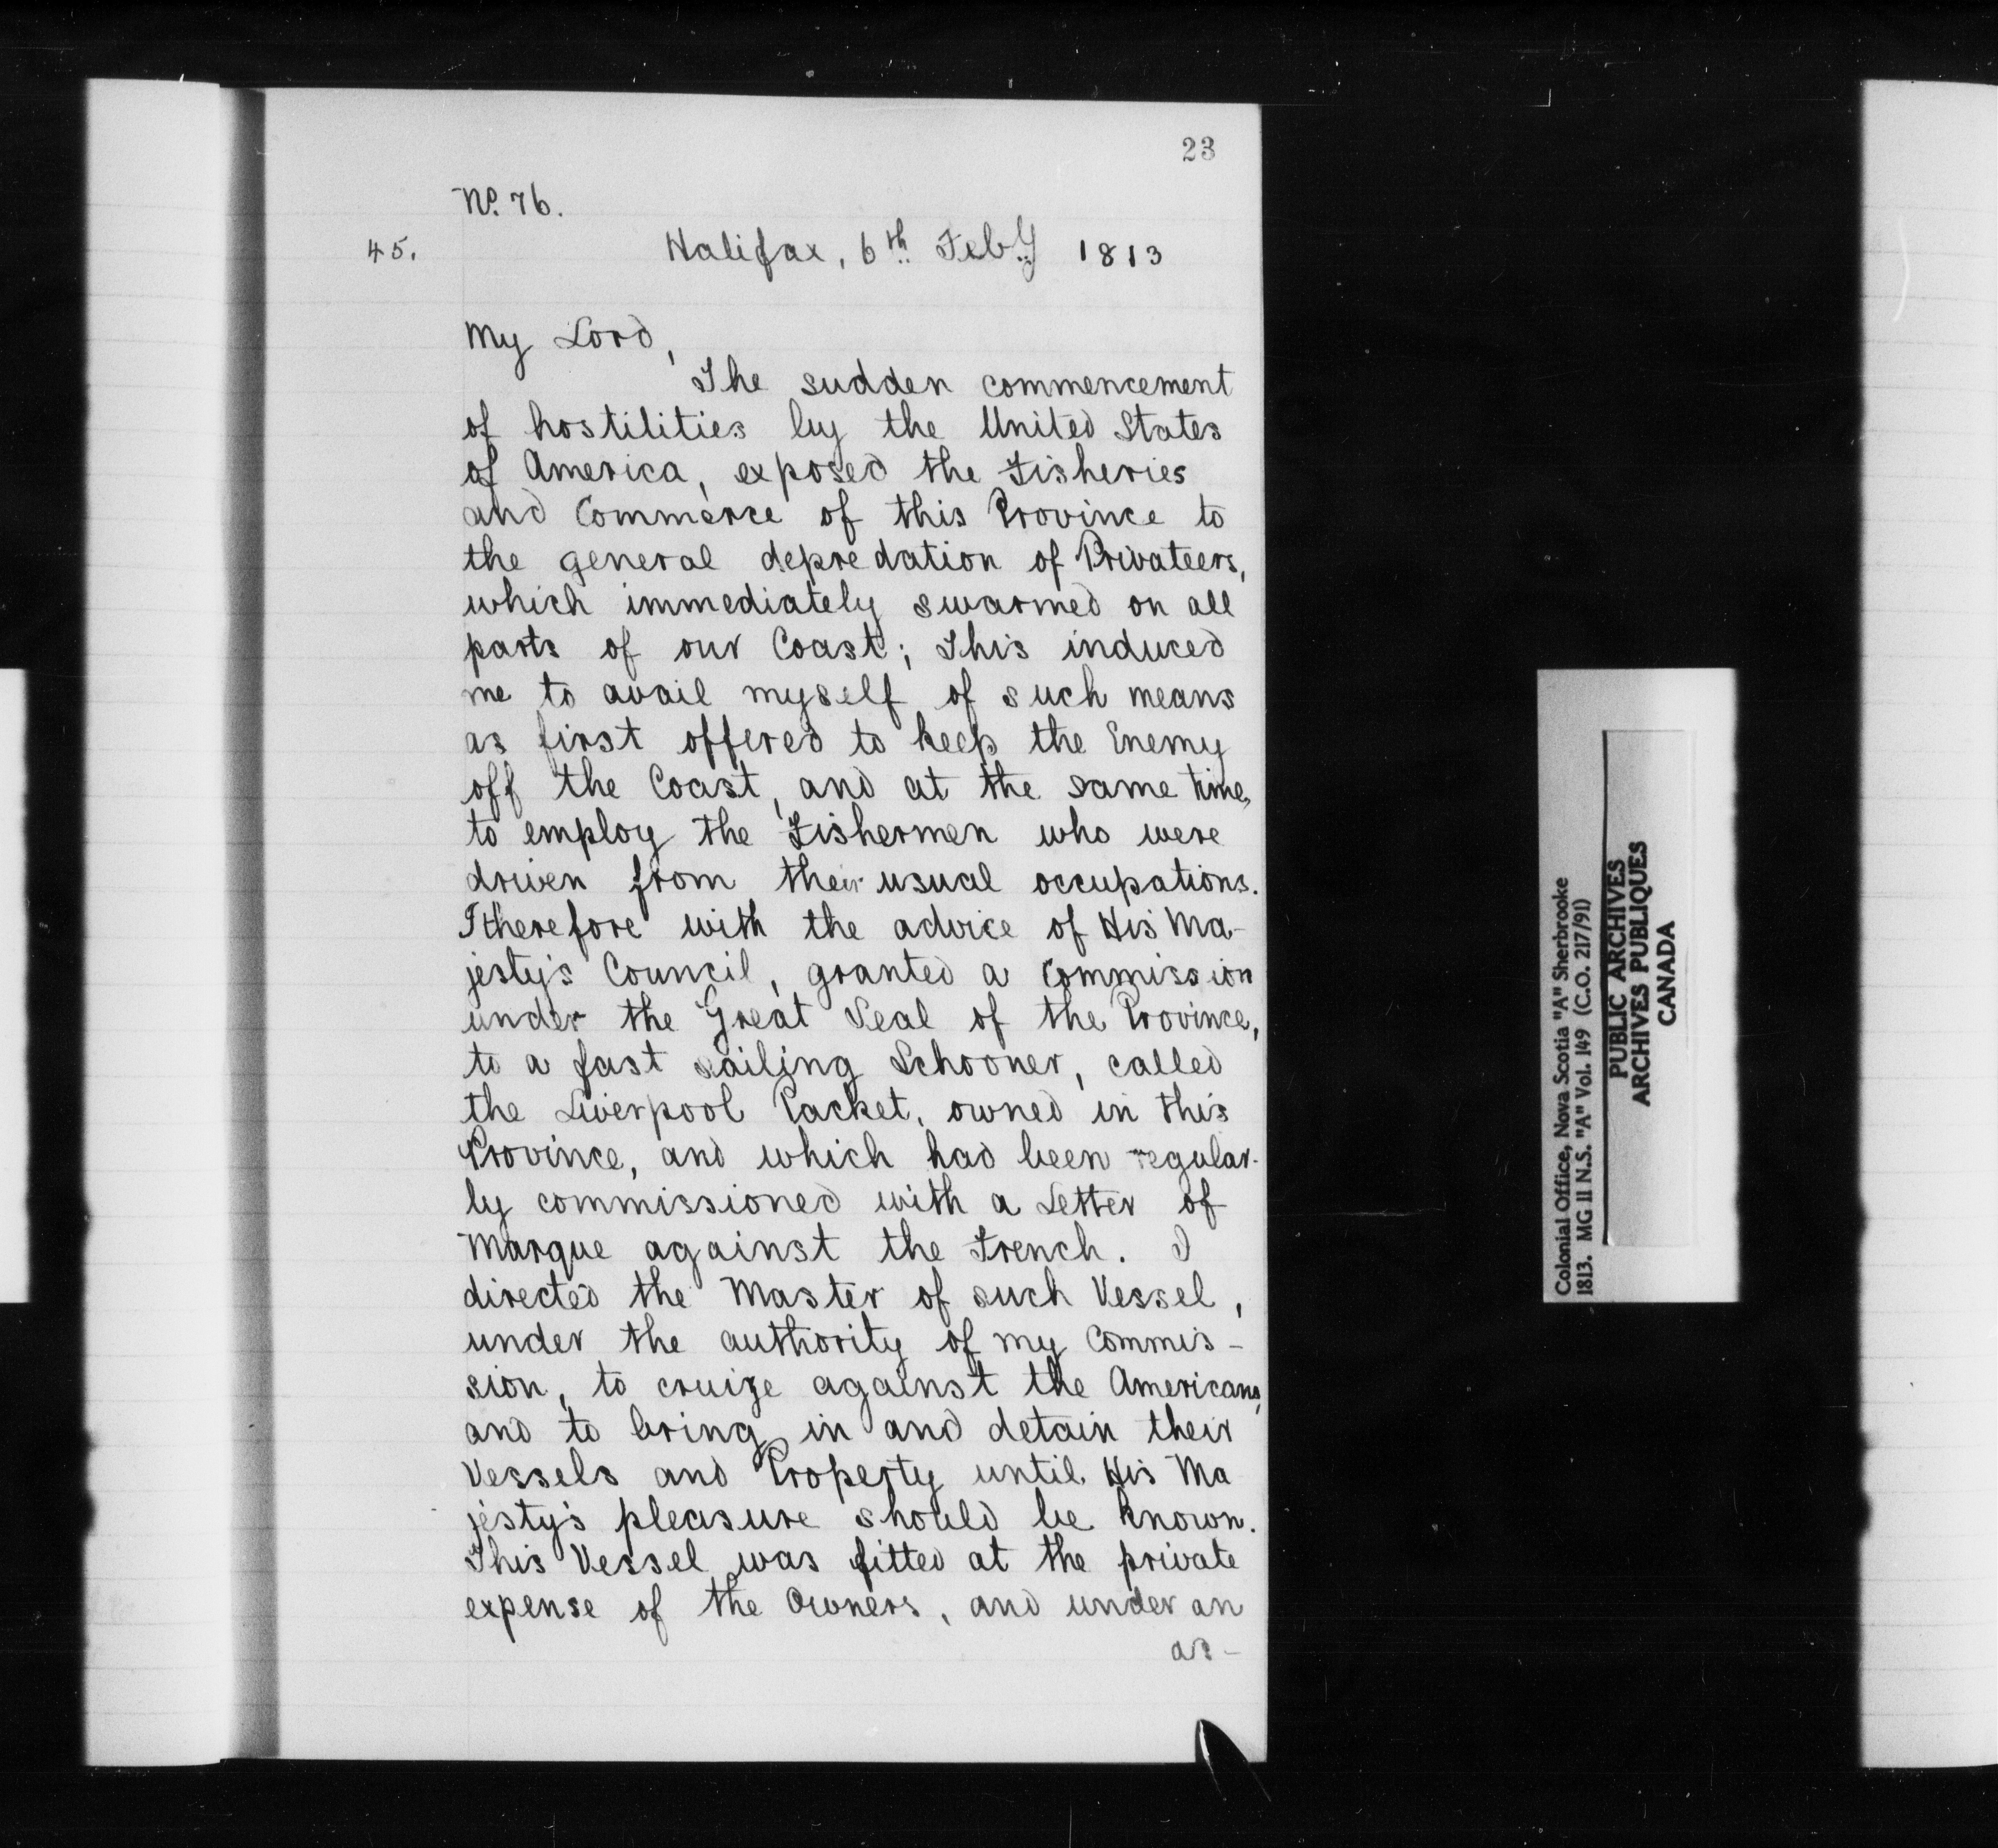 23
No. 76.
45.
Halifax, 6th Feby 1813
My Lord,
The sudden commencement
of hostilities by the United States
of America, exposed the Fisheries
and Commerce of this Province to
the general depredation of Privateers,
which immediately swarmed on all
parts of our Coast; This induced
me to avail myself of such means
as first offered to keep the Enemy
off the Coast, and at the same time,
to employ the Fishermen who were
driven from their usual occupations.
I therefore with the advice of His Ma-
jesty's Council, granted a Commission
under the Great Seal of the Province,
to a fast sailing Schooner, called
the Liverpool Packet, owned in this
Province, and which had been regular-
ly commissioned with a Letter of
Marque against the French. I
directed the Master of such Vessel,
under the authority of my Commis-
sion, to cruize against the Americans,
and to bring in and detain their
Vessels and Property until His Ma
jesty's pleasure should be known.
This Vessel was fitted at the private
expense of the Owners, and under an
as-
Colonial Office, Nova Scotia "A" Sherbrooke
1813. MG 11 N.S. "A" Vol. 149 (C.O. 217/91)
PUBLIC ARCHIVES
ARCHIVES PUBLIQUES
CANADA